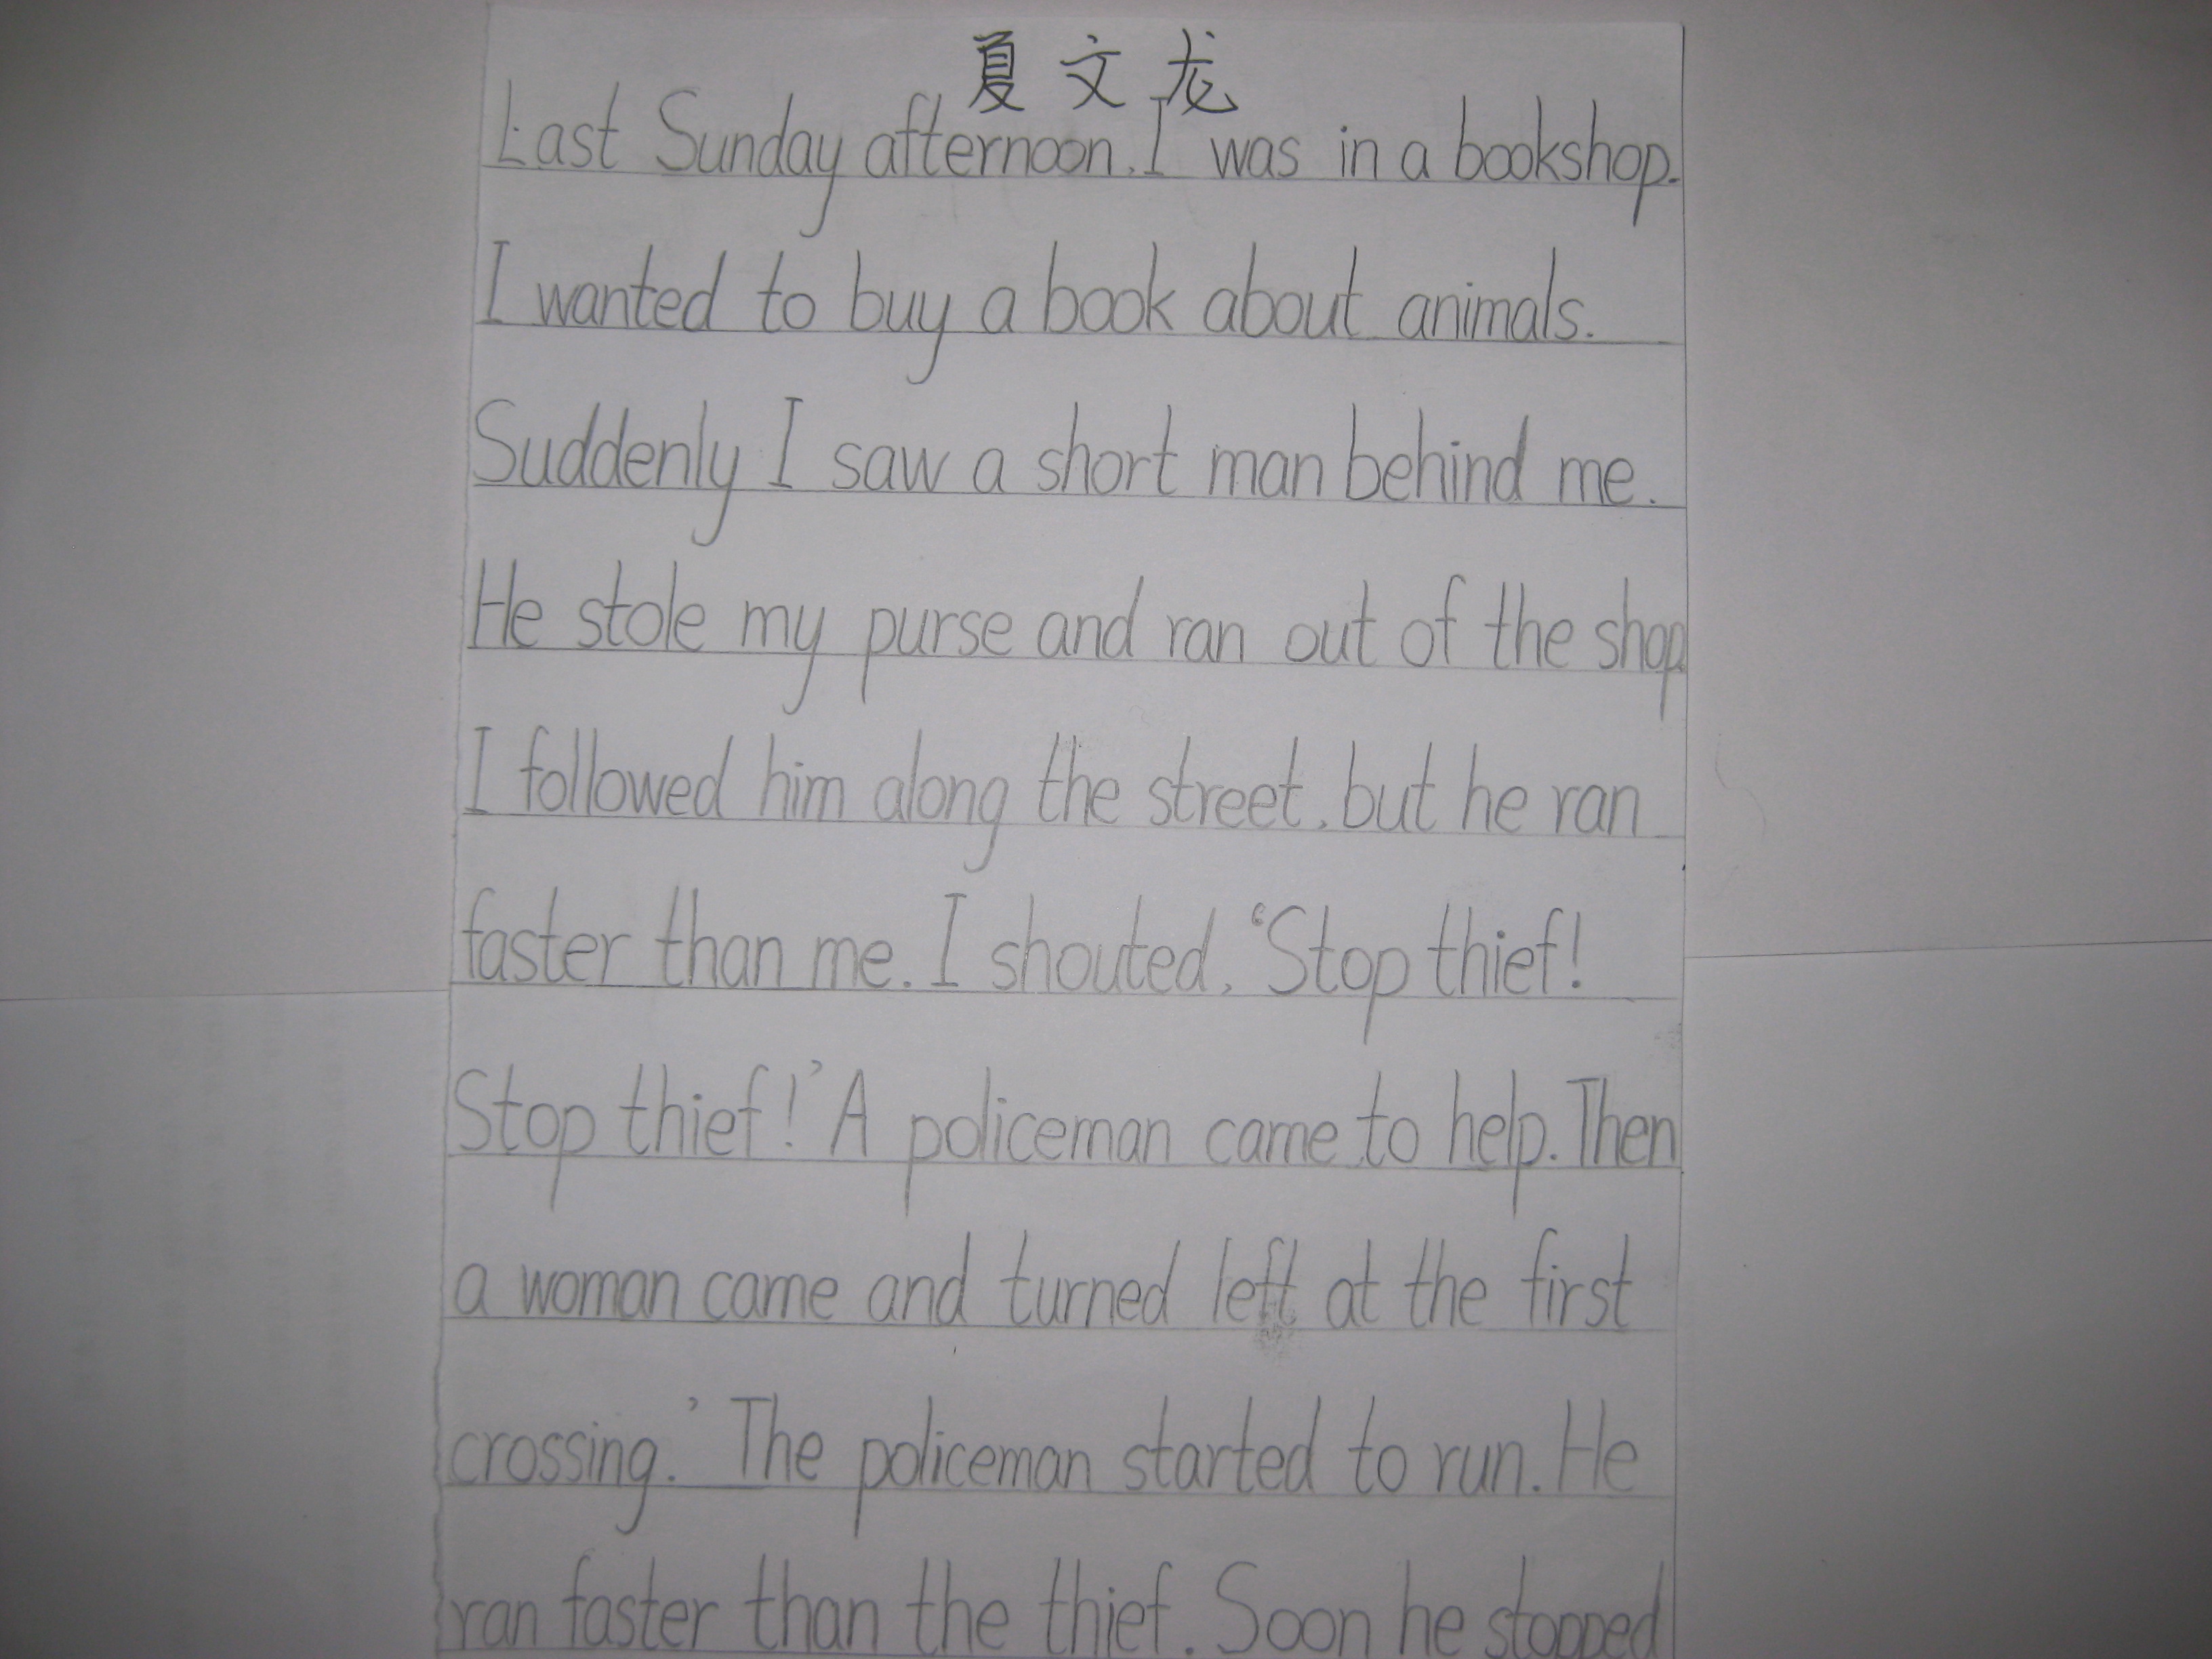 夏文龙
Last Sunday afternoon, I was in a bookshop.
I wanted to buy a book about animals.
Suddenly I saw a short man behind me.
He stole my purse and ran out of the shop
I followed him along the street, but he ran
faster than me. I shouted, ‘Stop thief!
Stop thief!’ A policeman came to help. Then
a woman came and turned left at the first
crossing.’ The policeman started to run. He
ran faster than the thief. Soon he stopped